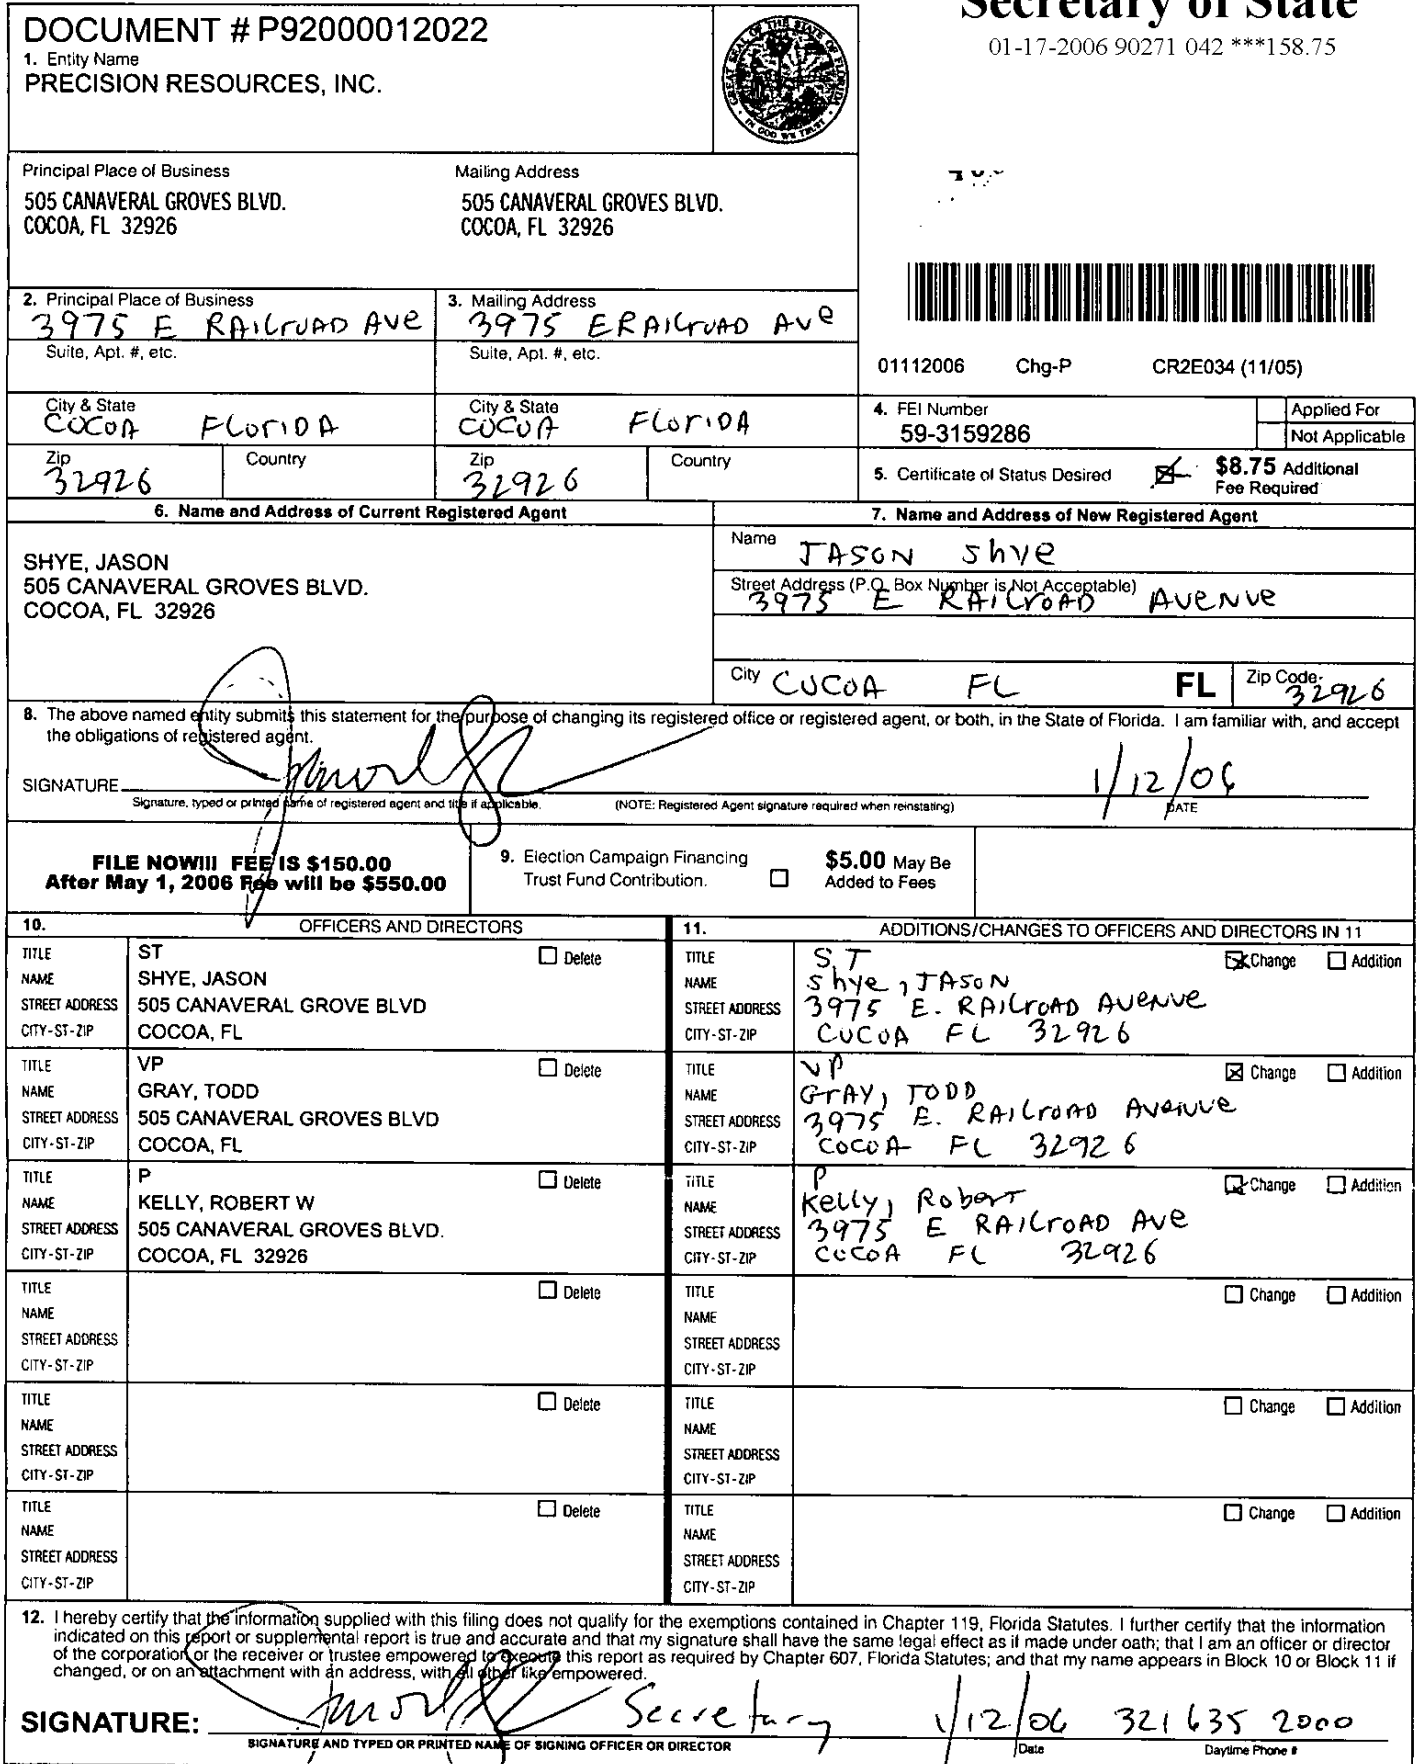 Secretary of State
01-17-2006 90271 042 ***158.75
DOCUMENT # P92000012022
1. Entity Name
PRECISION RESOURCES, INC.
GREAT SEAL OF THE STATE OF FLORIDA
IN GOD WE TRUST
Principal Place of Business
505 CANAVERAL GROVES BLVD.
COCOA, FL 32926
Mailing Address
505 CANAVERAL GROVES BLVD.
COCOA, FL 32926
2. Principal Place of Business
3975 E RAILroAD AVe
Suite, Apt. #, etc.
City & State
COCOA FLoriDA
Zip
32926
Country
3. Mailing Address
3975 E RAILroAD AVe
Suite, Apt. #, etc.
City & State
COCOA FLoriDA
Zip
32926
Country
01112006 Chg-P CR2E034 (11/05)
4. FEI Number
59-3159286
Applied For
Not Applicable
5. Certificate of Status Desired
$8.75 Additional
Fee Required
6. Name and Address of Current Registered Agent
SHYE, JASON
505 CANAVERAL GROVES BLVD.
COCOA, FL 32926
7. Name and Address of New Registered Agent
Name JASON Shye
Street Address (P.O. Box Number is Not Acceptable)
3975 E RAILroAD AveNue
City COCOA FL FL Zip Code 32926
8. The above named entity submits this statement for the purpose of changing its registered office or registered agent, or both, in the State of Florida. I am familiar with, and accept
the obligations of registered agent.
SIGNATURE 1/12/06
Signature, typed or printed name of registered agent and title if applicable. (NOTE: Registered Agent signature required when reinstating) DATE
FILE NOW!!! FEE IS $150.00
After May 1, 2006 Fee will be $550.00
9. Election Campaign Financing
Trust Fund Contribution.
$5.00 May Be
Added to Fees
10. OFFICERS AND DIRECTORS
TITLE ST Delete
NAME SHYE, JASON
STREET ADDRESS 505 CANAVERAL GROVE BLVD
CITY-ST-ZIP COCOA, FL
TITLE VP Delete
NAME GRAY, TODD
STREET ADDRESS 505 CANAVERAL GROVES BLVD
CITY-ST-ZIP COCOA, FL
TITLE P Delete
NAME KELLY, ROBERT W
STREET ADDRESS 505 CANAVERAL GROVES BLVD.
CITY-ST-ZIP COCOA, FL 32926
TITLE Delete
NAME
STREET ADDRESS
CITY-ST-ZIP
TITLE Delete
NAME
STREET ADDRESS
CITY-ST-ZIP
TITLE Delete
NAME
STREET ADDRESS
CITY-ST-ZIP
11. ADDITIONS/CHANGES TO OFFICERS AND DIRECTORS IN 11
TITLE S,T Change Addition
NAME Shye, JASON
STREET ADDRESS 3975 E. RAILroAD AveNue
CITY-ST-ZIP COCOA FL 32926
TITLE VP Change Addition
NAME GrAY, TODD
STREET ADDRESS 3975 E. RAILroAD AveNue
CITY-ST-ZIP COCOA FL 32926
TITLE P Change Addition
NAME Kelly, Robert
STREET ADDRESS 3975 E RAILroAD AVe
CITY-ST-ZIP COCOA FL 32926
TITLE Change Addition
NAME
STREET ADDRESS
CITY-ST-ZIP
TITLE Change Addition
NAME
STREET ADDRESS
CITY-ST-ZIP
TITLE Change Addition
NAME
STREET ADDRESS
CITY-ST-ZIP
12. I hereby certify that the information supplied with this filing does not qualify for the exemptions contained in Chapter 119, Florida Statutes. I further certify that the information
indicated on this report or supplemental report is true and accurate and that my signature shall have the same legal effect as if made under oath; that I am an officer or director
of the corporation or the receiver or trustee empowered to execute this report as required by Chapter 607, Florida Statutes; and that my name appears in Block 10 or Block 11 if
changed, or on an attachment with an address, with all other like empowered.
SIGNATURE: Secretary 1/12/06 321 635 2000
SIGNATURE AND TYPED OR PRINTED NAME OF SIGNING OFFICER OR DIRECTOR Date Daytime Phone #